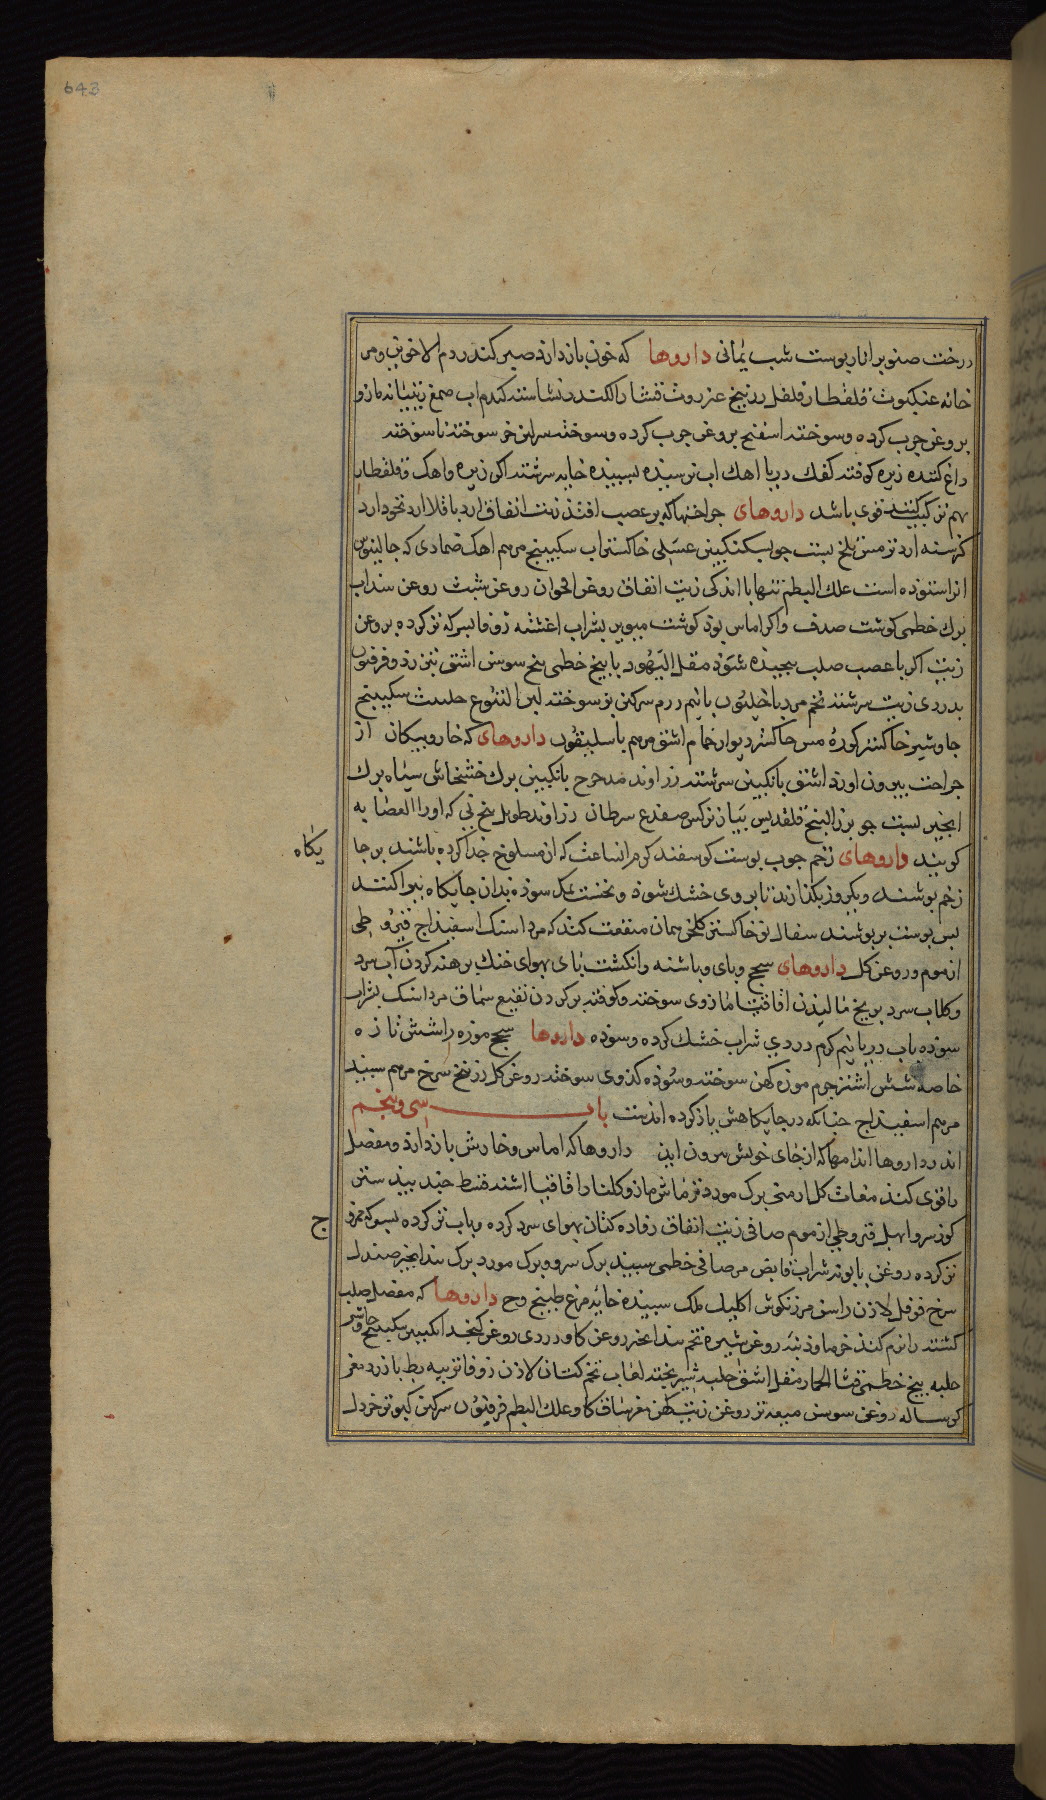 643
درخت صنوبر انار پوست شب یمانی داروها که خون بازدارد صبر کندر دم الاخوین و مر
خانه عنکبوت قلقطار فلفل زرنیخ عنزروت قشار الکندر نشاسته کندم اب صمغ مازو
بروغن چرب کرده و سوخته اسفنج بروغن چرب کرده و سوخته سرکین خر سوخته ناسوخته
داغ کننده زیره کوفته کفک دریا اهک اب نرسیده بسپیده خایه سرشته اکر زیره و اهک و قلقطار
بهم ترکیب کنند قوی باشد داروهای جراحتها که بر عصب افتذ زیت انفاق ارد باقلا ارد نخود ارد
کرسنه ارد ترمس تلخ بست جو بسکنکبین عسلی خاکستر اب سکبینج مرهم اهک ضمادی که جالینوس
انرا ستوذه است علک البطم تنها با اندکی زیت انفاق روغن اقحوان روغن شبث روغن سداب
برک خطمی کوشت صدف و اکر اماس بود کوشت میویز بشراب اغشته زوفا بسرکه تر کرده بروغن
زیت اکر با عصب صلب بیچیذه شوذ مقل الیهود با بیخ خطمی بیخ سوسن اشق و فرفیون
بدردی زیت سرشته تخم مرد سرکین بز سوخته لبن الیتوع حلتیت سکبینج
جاوشیر خاکستر کوره مس خاکستر دیوار حمام اشق مرهم باسلیقون داروهای که خار و پیکان از
جراحت بیرون اورد اشق بانکبین سرشته زراوند مدحرج بانکبین برک خشخاش سیاه برک
انجیر بست جو بزر البنج قلقدیس پیاز نرکس ضفدع سرطان زراوند طویل بیخ نی که اورا به
کویند داروهای زخم چوب پوست کوسفند کرم ان ساعت که از مسلوخ جدا کرده باشند بر جا
یکاه
زخم پوشند و یکروز بکذارند تا بروی خشک شوذ و نخست نمک سوذه بذان جایکاه بپراکنند
پس پوست بر پوشند سفال نو خاکستر کلخن همان منفعت کند که مرداسنک اسفیداج قیروطی
از موم و روغن کل داروهای سحج و پای و پاشنه و انکشت پای بهوای خنک برهنه کردن آب سرد
و کلاب سرد بر یخ مالیذن اقاقیا مازوی سوخته و کوفته بر کردن نقیع سماق مرداسنک بشراب
سوذه باب دریا نیم کرم دردی شراب خشک کرده و سوذه داروها سحج موزه را شش تازه
خاصه شش اشتر چرم موزه کهن سوخته و سوذه کذوی سوخته روغن کل زرنیخ سرخ مرهم سپید
مرهم اسفیداج چنانکه در جایکاهش یاذ کرده اند باب سی و پنجم
اندر داروها اندامها که از جای خویش بیرون اید داروها که اماس و خارش باز دارد و مفصل
را قوی کند مغاث کل ارمنی برک مورد تر ماش مازو کلنار اقاقیا اشنه قسط جند بیدستر
کوز سرو ابهل قیروطی از موم صافی زیت انفاق رفاده کتان بهوای سرد کرده و باب تر کرده بسرکه ممزوج
ج
تر کرده روغن بابونه شراب قابض مر صافی خطمی سپید برک سرو و برک مورد برک بیدانجیر صندل
سرخ فوفل لاذن راسن مرزنکوش اکلیل ملک سپیده خایه مرغ طبیخ وج داروها که مفصل صلب
کشته را نرم کند خرما و دنبه روغن شیره تخم بیدانجیر روغن کاو دردی روغن کنجد انکبین سکبینج جاوشیر
حلبه بیخ خطمی قثا الحمار مقل اشق حلبه بشیر پخته لعاب تخم کتان لاذن زوفا تر پیه بط بازرد مغز
کوساله روغن سوسن میعه تر روغن زیت کهن مغز ساق کاو علک البطم فرفیون سرکین کبوتر خردل